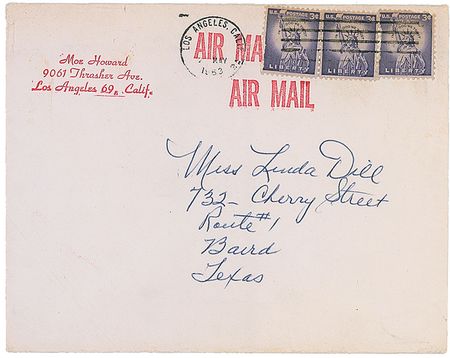 Moe Howard
9061 Thrasher Ave.
Los Angeles 69, Calif.
LOS ANGELES, CALIF.
MAY
1963
AIR MA
AIR MAIL
U.S. POSTAGE 3¢
LIBERTY
U.S. POSTAGE 3¢
LIBERTY
U.S. POSTAGE 3¢
LIBERTY
Miss Linda Dill
732- Cherry Street
Route #1
Baird
Texas